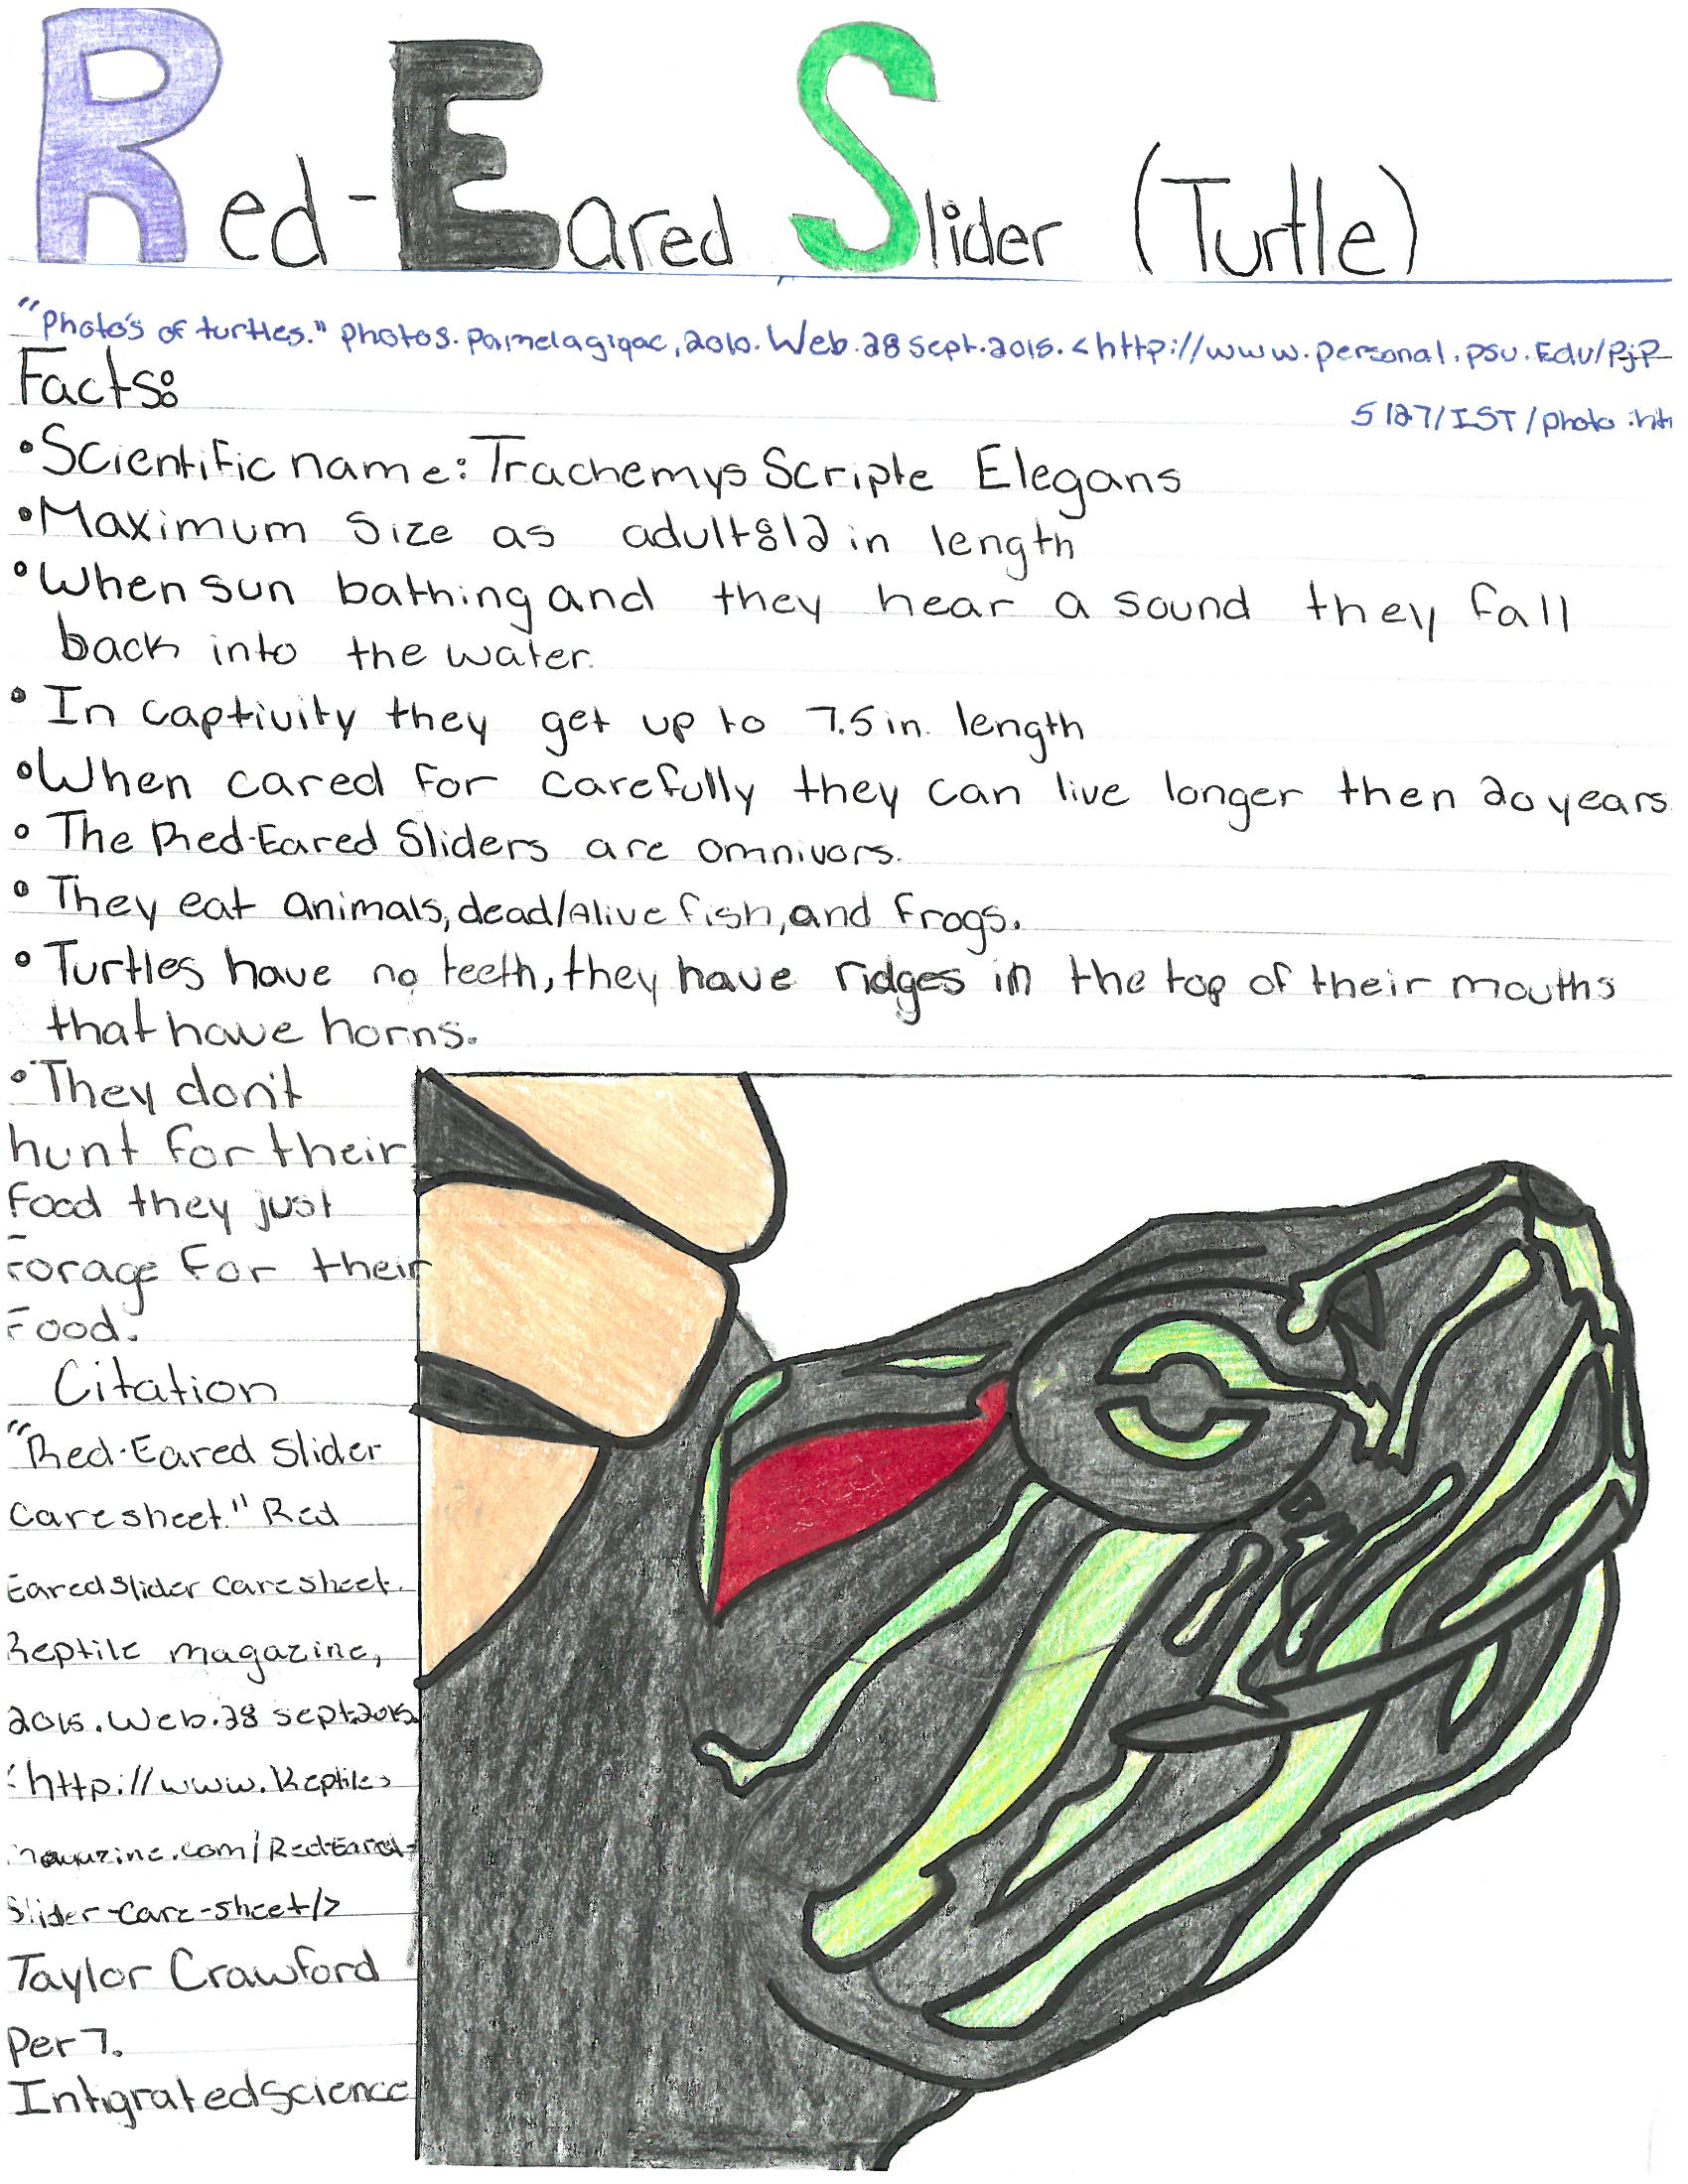 Red-Eared Slider (Turtle)
"Photo's of turtles." Photos. Pamelagigac, 2010. Web. 28 sept. 2015. <http://www.personal.psu.Edu/PjP
5127/IST/photo.htm
Facts:
•Scientific name: Trachemys Scripte Elegans
•Maximum Size as adult:12 in length
•When sun bathing and they hear a sound they fall
back into the water.
•In captivity they get up to 7.5 in. length
•When cared for carefully they can live longer then 20 years
•The Red-Eared Sliders are omnivors.
•They eat animals, dead/Alive fish, and frogs.
•Turtles have no teeth, they have ridges in the top of their mouths
that have horns.
•They don't
hunt for their
food they just
forage for their
food.
Citation
"Red-Eared Slider
Caresheet." Red
Eared Slider Caresheet.
Reptile magazine,
2015. Web. 28 sept. 2015.
<http://www.Reptiles
magazine.com/Red-Eared-
Slider-Care-Sheet/>
Taylor Crawford
Per 7.
Intigrated Science